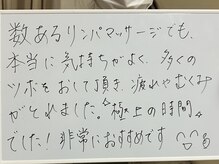 数あるリンパマッサージでも、
本当に気持ちがよく、多くの
ツボをおして頂き、疲れやむくみ
がとれました。「極上の時間」
でした！非常におすすめです